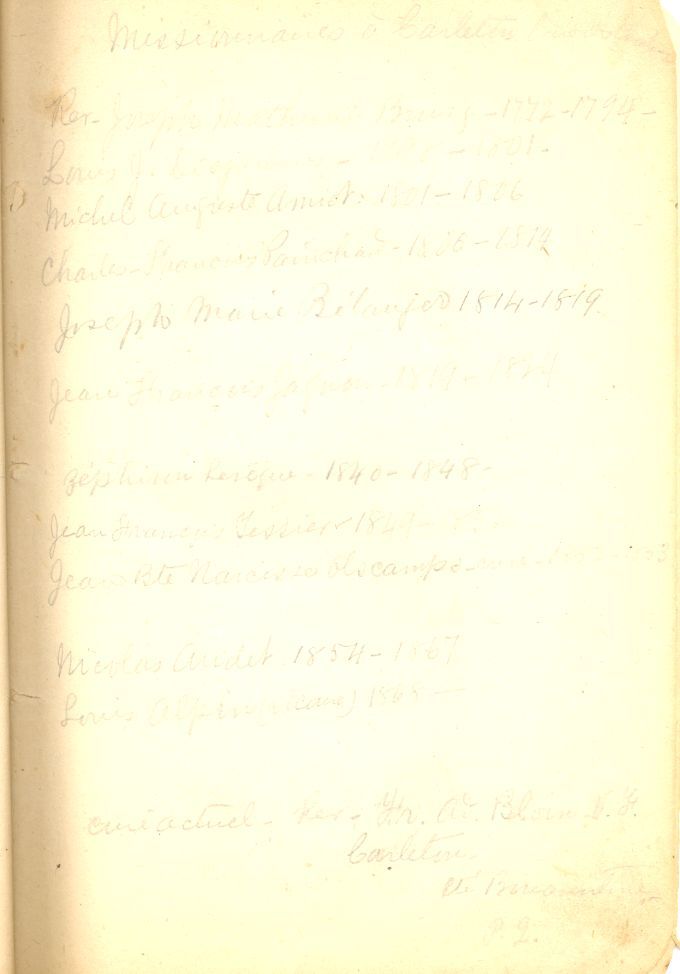 Missionnaires à Carleton
Rev. Joseph Mathurin Bourg - 1772-1794-
Louis J. - 1801-
Michel Auguste Amiot: 1801-1806
Charles-Francois Painchaud - 1806-1814
Joseph Marie Bélanger 1814-1819.
Jean François Gagnon - 1819-
Zéphirin Levêque - 1840-1848-
Jean François Tessier - 1849-
Jean Bte Narcisse Olscamps - curé -
Nicolas Audet 1854-1867
Louis 1868-
curé actuel - Rev - Fr. Ad. Blouin V. F.
Carleton
cté Bonaventure
P. Q.